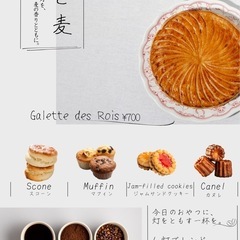 と麦
麦の香りとともに。
Galette des Rois ¥700
Scone
スコーン
Muffin
マフィン
Jam-filled cookies
ジャムサンドクッキー
Canel
カヌレ
今日のおやつに。
灯をともす一杯を。